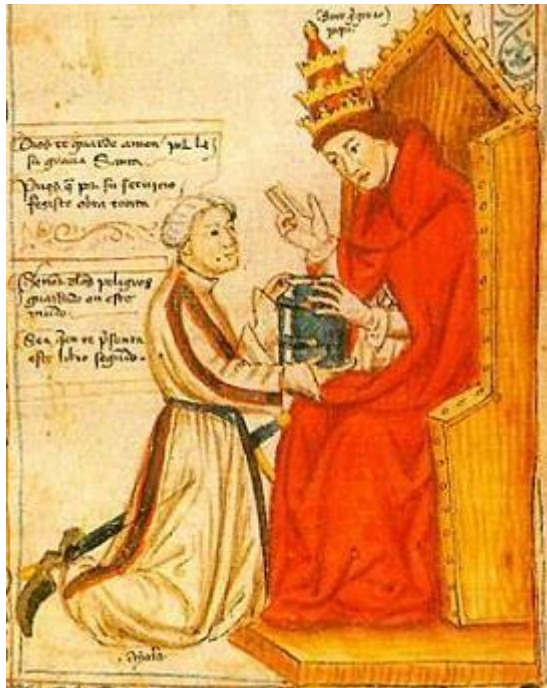 papa
Dios te guarde amen por la
su gracia Santa
Pues q̃ por su servicio
feziste obra tanta
Señor delos peligros
guardado en este
mundo
Sea te p̃senta
este libro segũdo.
Ayala